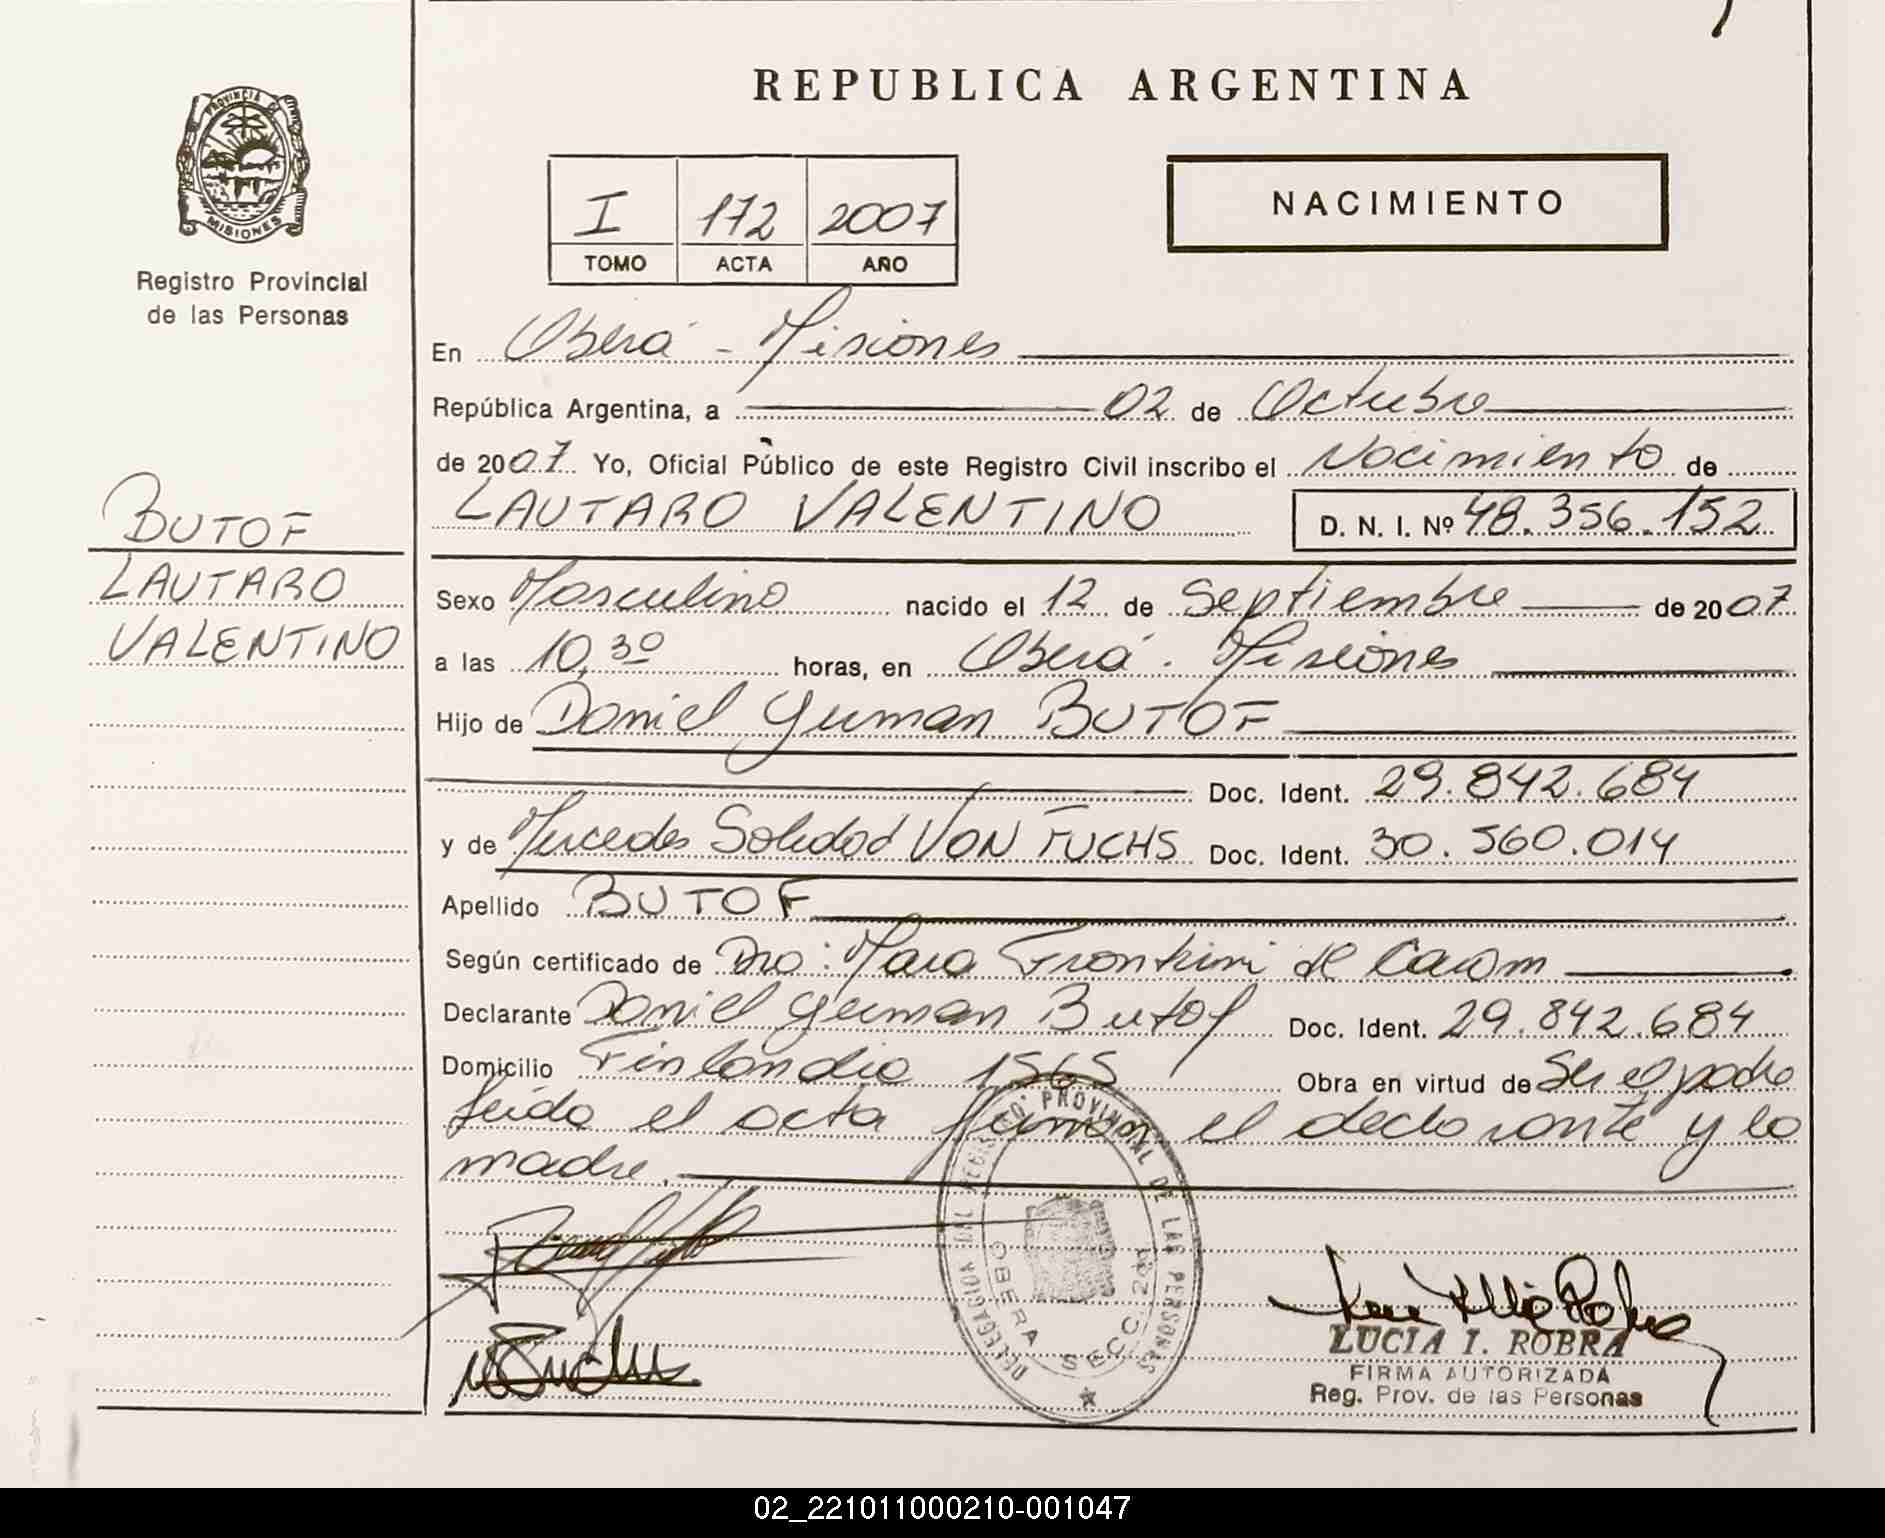 PROVINCIA DE
MISIONES
Registro Provincial
de las Personas
BUTOF
LAUTARO
VALENTINO
REPUBLICA ARGENTINA
I 172 2007
TOMO ACTA AÑO
NACIMIENTO
En Oberá - Misiones
República Argentina, a 02 de Octubre
de 2007 Yo, Oficial Público de este Registro Civil inscribo el Nacimiento de
LAUTARO VALENTINO D. N. I. Nº 48.356.152
Sexo Masculino nacido el 12 de Septiembre de 2007
a las 10,30 horas, en Oberá - Misiones
Hijo de Daniel German BUTOF
Doc. Ident. 29.842.684
y de Mercedes Soledad VON FUCHS Doc. Ident. 30.560.014
Apellido BUTOF
Según certificado de Dra: Mara de
Declarante Daniel German Butof Doc. Ident. 29.842.684
Domicilio Finlandia 1565 Obra en virtud de Ser el padre
leída el acta firman el declarante y la
madre.
DELEGACION DEL REGISTRO PROVINCIAL DE LAS PERSONAS
OBERA SECC. 2da
LUCIA I. ROBRA
FIRMA AUTORIZADA
Reg. Prov. de las Personas
02_221011000210-001047